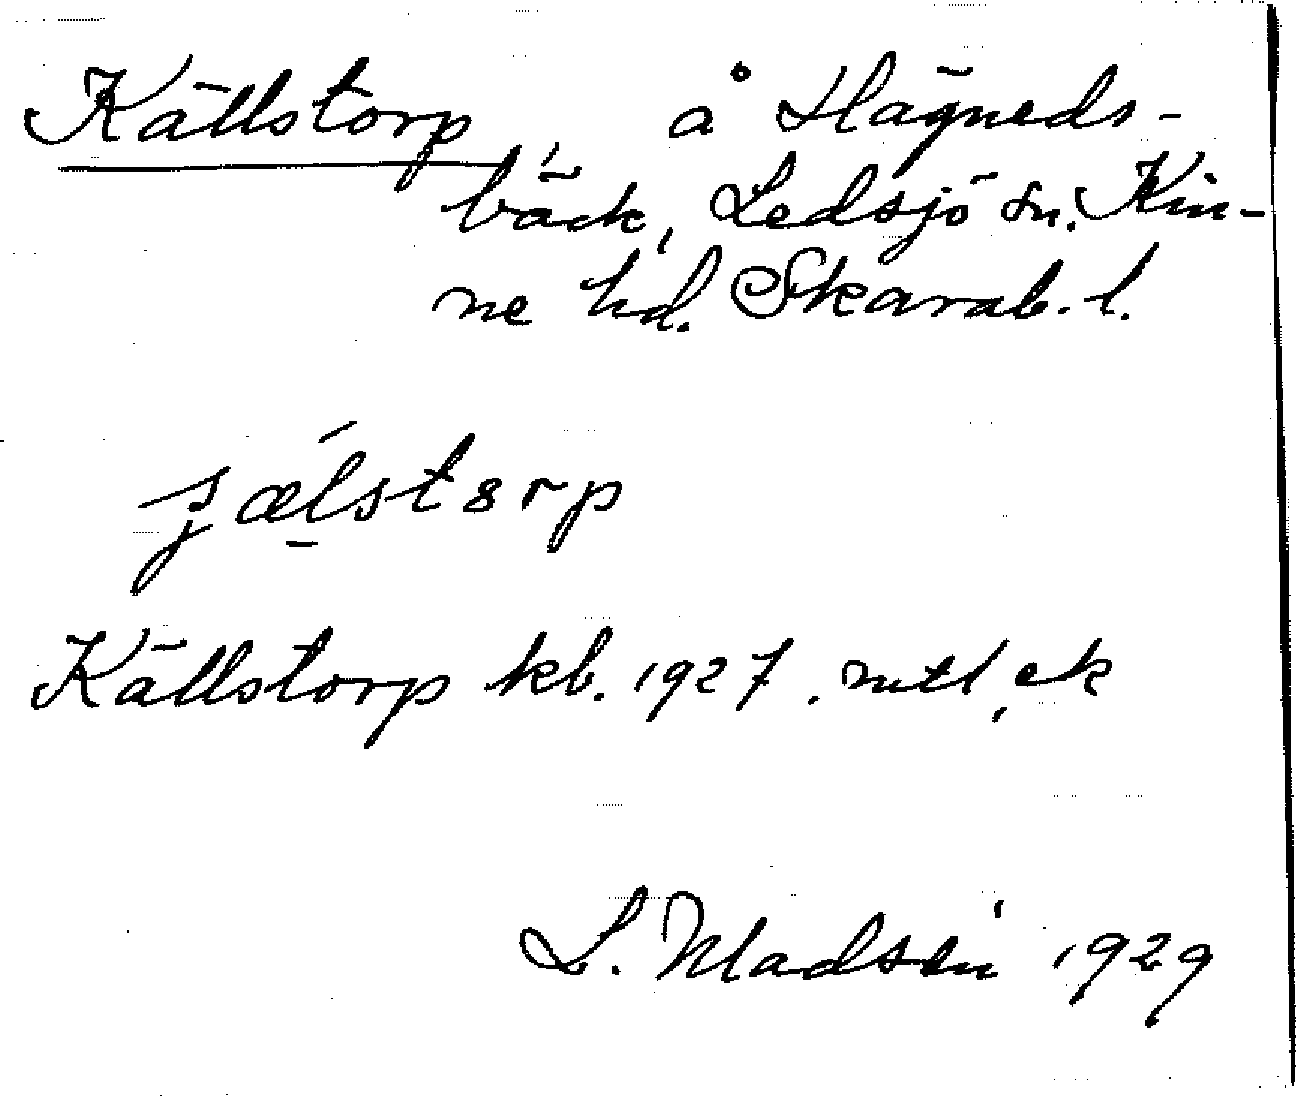 Källstorp, å Hägneds-
bäck, Ledsjö sn. Kin-
ne hd. Skarab. l.
Källstorp kb. 1927. mtl, ek
L. Madsén 1929